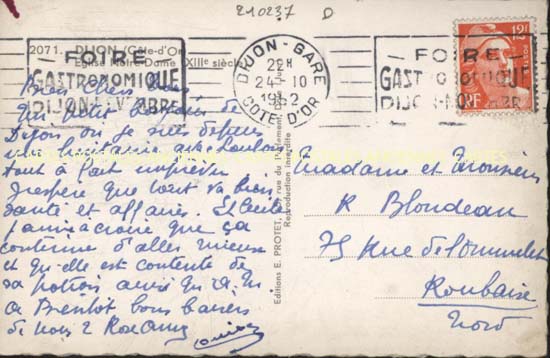 210237 D
2071. DIJON (Côte-d'Or)
Eglise Notre-Dame (XIIIe siècle)
FOIRE
GASTRONOMIQUE
DIJON-NOVEMBRE
DIJON-GARE
22H
24-10
1952
COTE D'OR
FOIRE
GASTRONOMIQUE
DIJON-NOVEMBRE
12F
RF
Bien chers
Un petit bonjour de
Dijon où je suis depuis
une huitaine avec
tout à fait imprévu
J'espère que tout va bien
santé et affaires. Et Cécile
j'aime à croire que ça
continue d'aller mieux
et qu'elle est contente de
sa
à Bientôt bons baisers
de nous 2
Editions E. PROTET, rue du
Reproduction interdite
Madame et Monsieur
R Blondeau
75 Rue de
Roubaix
Nord